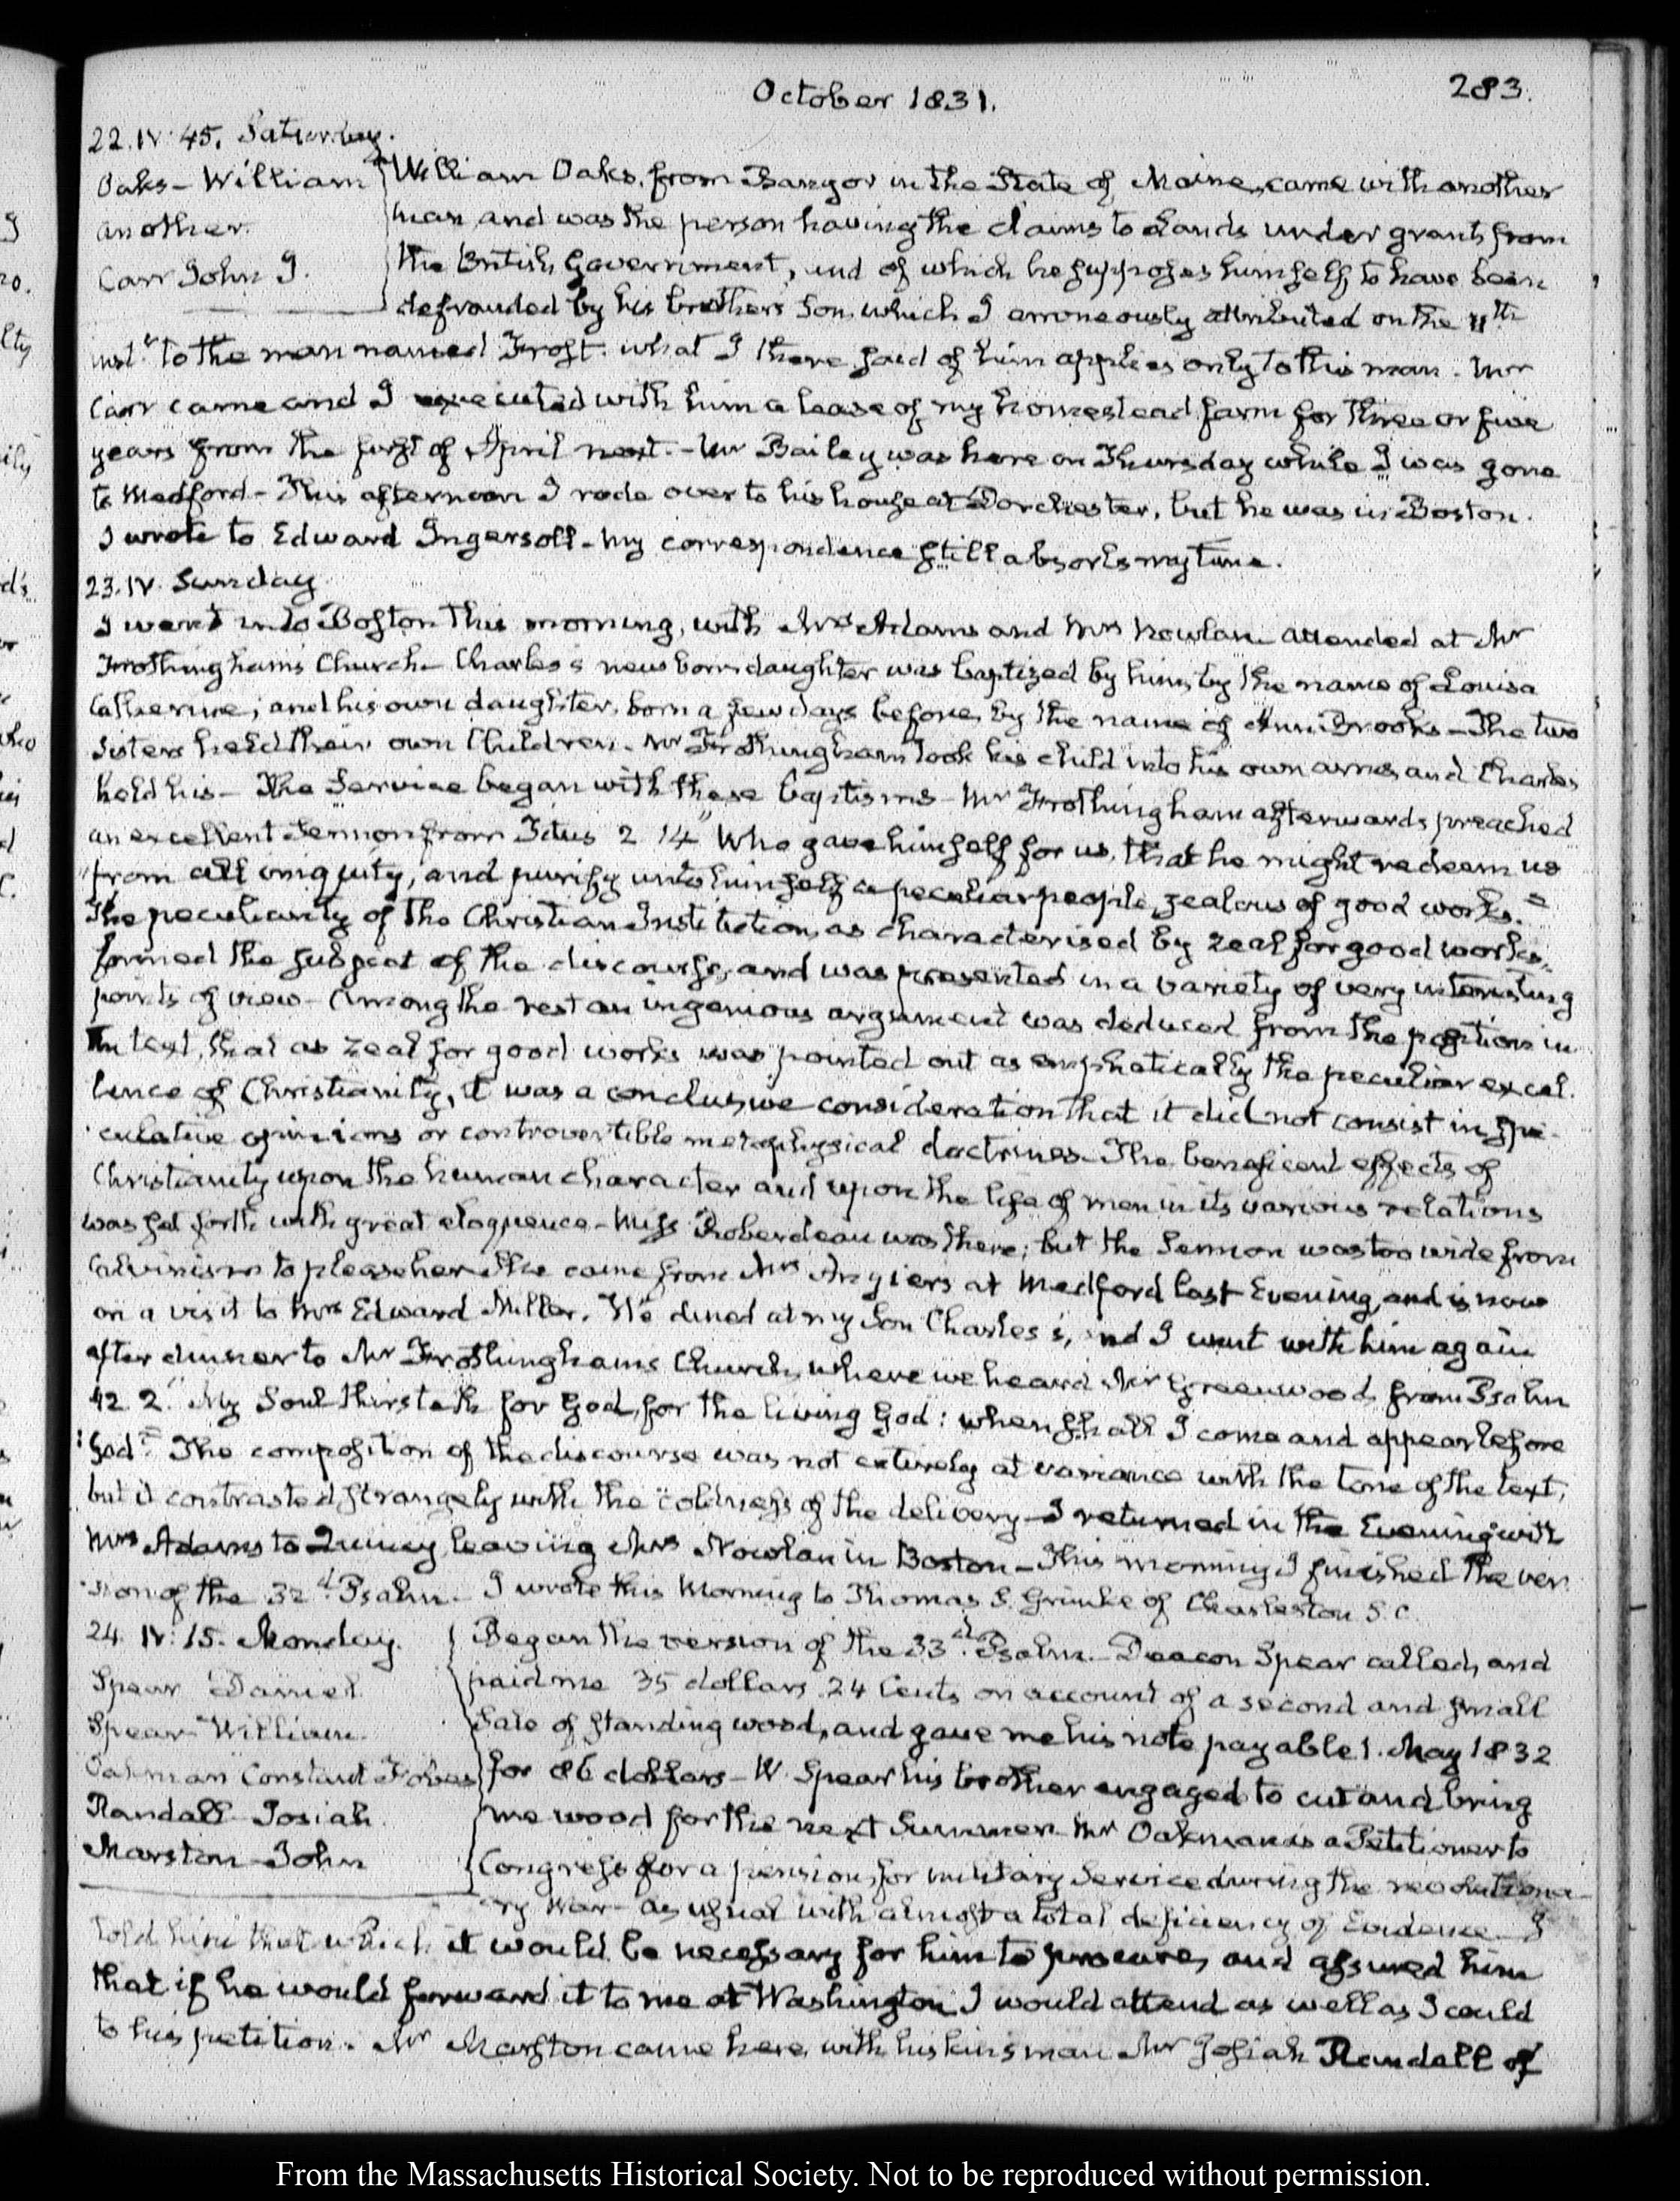 October 1831.
283.
22. IV. 45. Saturday.
Oaks - William
another.
Carr John J.
William Oaks, from Bangor in the State of Maine, came with another
man, and was the person having the claims to Lands under grants from
the British Government, and of which he supposes himself to have been
defrauded by his brother's Son, which I erroneously attributed on the 11th
inst. to the man named Frost. what I there said of him applies only to this man. Mr
Carr came and I executed with him a lease of my homestead farm for three or five
years from the first of April next. - Mr Bailey was here on Thursday while I was gone
to Medford - This afternoon I rode over to his house at Dorchester, but he was in Boston.
I wrote to Edward Ingersoll - My correspondence still absorbs my time.
23. IV. Sunday
I went into Boston this morning, with Mrs Adams and Mrs Nowlan attended at Mr
Frothingham's Church - Charles's new born daughter was baptized by him, by the name of Louisa
Catherine; and his own daughter, born a few days before, by the name of Ann Brooks - The two
Sisters held their own Children - Mr Frothingham took his child into his own arms, and Charles
held his - The Service began with these baptisms - Mr Frothingham afterwards preached
an excellent Sermon from Titus 2 14 "Who gave himself for us, that he might redeem us
"from all iniquity, and purify unto himself a peculiar people, zealous of good works."
The peculiarity of the Christian Institution, as characterised by zeal for good works,
formed the subject of the discourse, and was presented in a variety of very interesting
points of view - Among the rest an ingenious argument was deduced from the position in
the text, that as zeal for good works was pointed out as emphatically the peculiar excel-
lence of Christianity, it was a conclusive consideration that it did not consist in spe-
culative opinions or controvertible metaphysical doctrines - The beneficent effects of
Christianity upon the human character and upon the life of man in its various relations
was set forth with great eloquence - Miss Roberdeau was there; but the Sermon was too wide from
Calvinism to please her. She came from Mrs Angiers at Medford last Evening, and is now
on a visit to Mrs Edward Miller. We dined at my Son Charles's, and I went with him again
after dinner to Mr Frothingham's Church, where we heard Mr Greenwood from Psalm
42. 2. "My Soul thirsteth for God, for the living God: when shall I come and appear before
:God" The composition of the discourse was not entirely at variance with the tone of the text;
but it contrasted strangely with the coldness of the delivery - I returned in the Evening with
Mrs Adams to Quincy leaving Mrs Nowlan in Boston - This morning I finished the ver-
sion of the 32d Psalm - I wrote this Morning to Thomas S. Grimke of Charleston S. C.
24. IV: 15. Monday.
Spear Daniel
Spear William.
Oakman Constant Fobes
Randall Josiah
Marston John
Began the version of the 33d Psalm - Deacon Spear called, and
paid me 35 dollars 24 Cents on account of a second and small
Sale of standing wood, and gave me his note payable 1. May 1832
for 86 dollars - W. Spear his brother engaged to cut and bring
me wood for the next Summer - Mr Oakman is a Petitioner to
Congress for a pension, for military Service during the revolutiona-
ry War - as usual with almost a total deficiency of Evidence - I
told him that which it would be necessary for him to procure, and assured him
that if he would forward it to me at Washington I would attend as well as I could
to his petition. Mr Marston came here with his kinsman Mr Josiah Randall of
From the Massachusetts Historical Society. Not to be reproduced without permission.